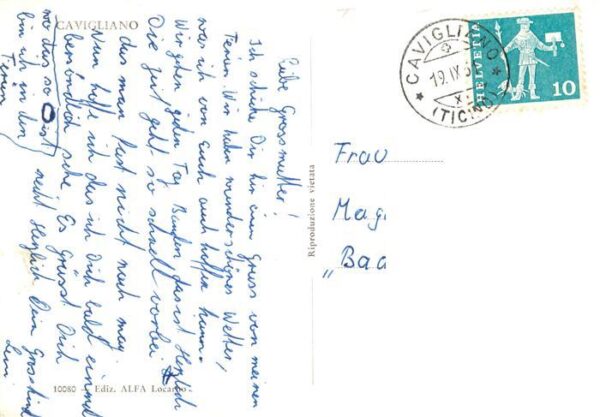 CAVIGLIANO
Liebe Grossmutter!
Ich schicke Dir hier einen Gruss von meinen
Ferien. Wir haben wunderschönes Wetter,
was ich von Euch auch hoffen kann.
Wir gehen jeden Tag Baden, das ist Herrlich
Die Zeit geht so schnell vorbei
das man fast nicht nach mag.
Nun hoffe ich das ich Dich bald einmal
persönlich sehe. Es Grüsst Dich
recht Herzlich Dein Grosskind
so
bin ich in den
Ferien
10080 - Ediz. ALFA Locarno
Riproduzione vietata
CAVIGLIANO
19.IX.6
(TICINO)
HELVETIA
10
Frau
Mag.
„Baa